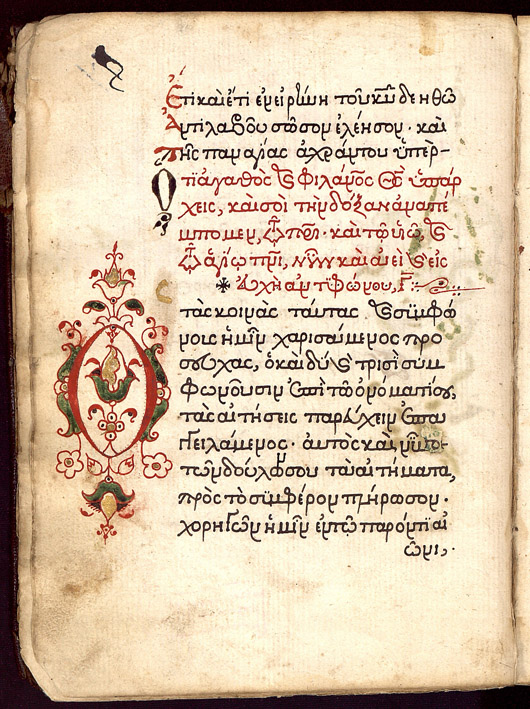 Ἔτι καὶ ἔτι ἐν εἰρήνη τοῦ κῦ δεηθῶ
Ἀντιλαβοῦ σῶσον ἐλέησον· καὶ
Τῆς παναγίας ἀχράντου ὑπερ-
Ὅτι ἀγαθὸς ϗ φιλάνος θς ὑπάρ
χεις, καὶ σοὶ τὴν δόξαν ἀναπέ
μπομεν, τῶ πρι· καὶ τῶ υἱῶ, ϗ
τῶ ἁγίω πνι, νῦν καὶ ἀεὶ ϗ εἰς
εὐχὴ ἀντιφώνου, γ
Ὁ τὰς κοινὰς ταύτας ϗ συμφώ
νοις ἡμῖν χαρισάμενος προ
σευχὰς, ὁ καὶ δύο ϗ τρισὶ συμ
φωνοῦσιν ἐπὶ τῶ ὀνόματί σου,
τὰς αἰτήσεις παρέχειν ἐπαγ
γειλάμενος· αὐτὸς καὶ νῦν
τῶν δούλων σου τὰ αἰτήματα,
πρὸς τὸ συμφέρον πλήρωσον·
χορηγῶν ἡμῖν ἐν τῶ παρόντι αἰ
ῶνι,·